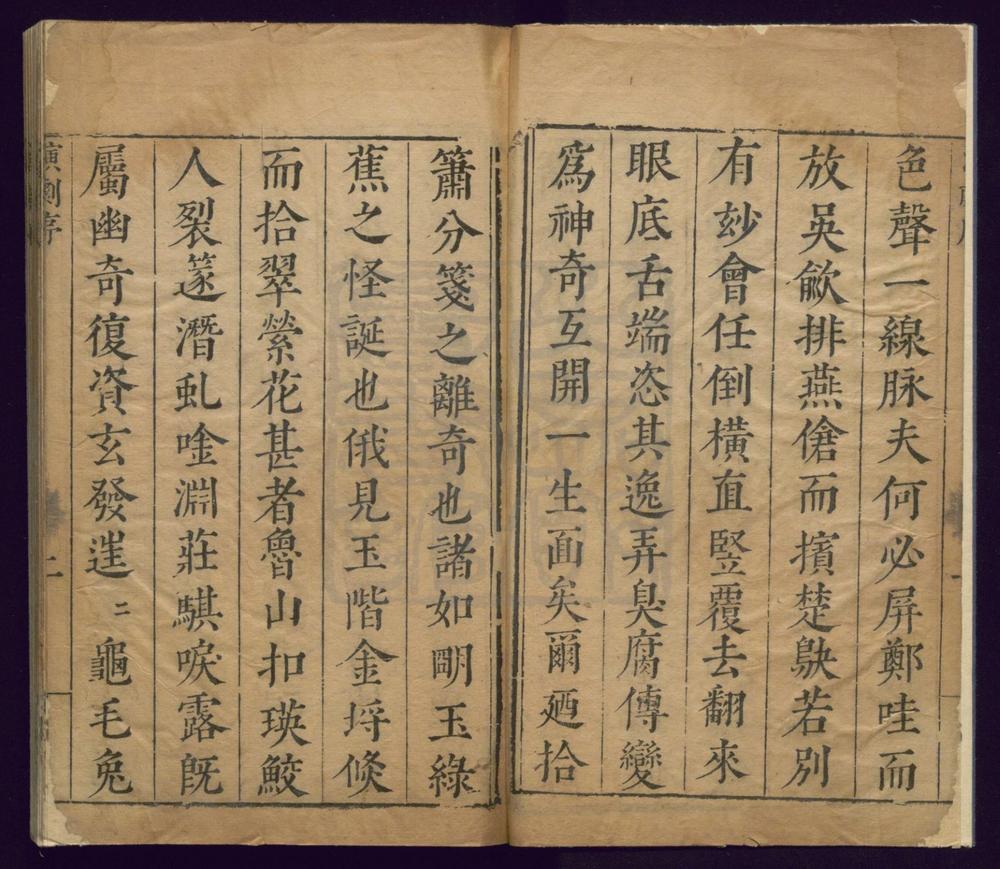 色聲一線脉夫何必屏鄭哇而
放吳歈排燕傖而擯楚鴃若別
有玅會任倒橫直竪覆去翻來
眼底舌端恣其逸弄臭腐傳變
爲神奇互開一生面矣爾廼拾
簫分箋之離奇也諸如明玉綠
蕉之怪誕也俄見玉階金埒倏
而拾翠縈花甚者魯山扣瑛鮫
人裂篴潛虬唫淵莊騏唳露旣
屬幽奇復資玄發進二龜毛兔
演劇序
二